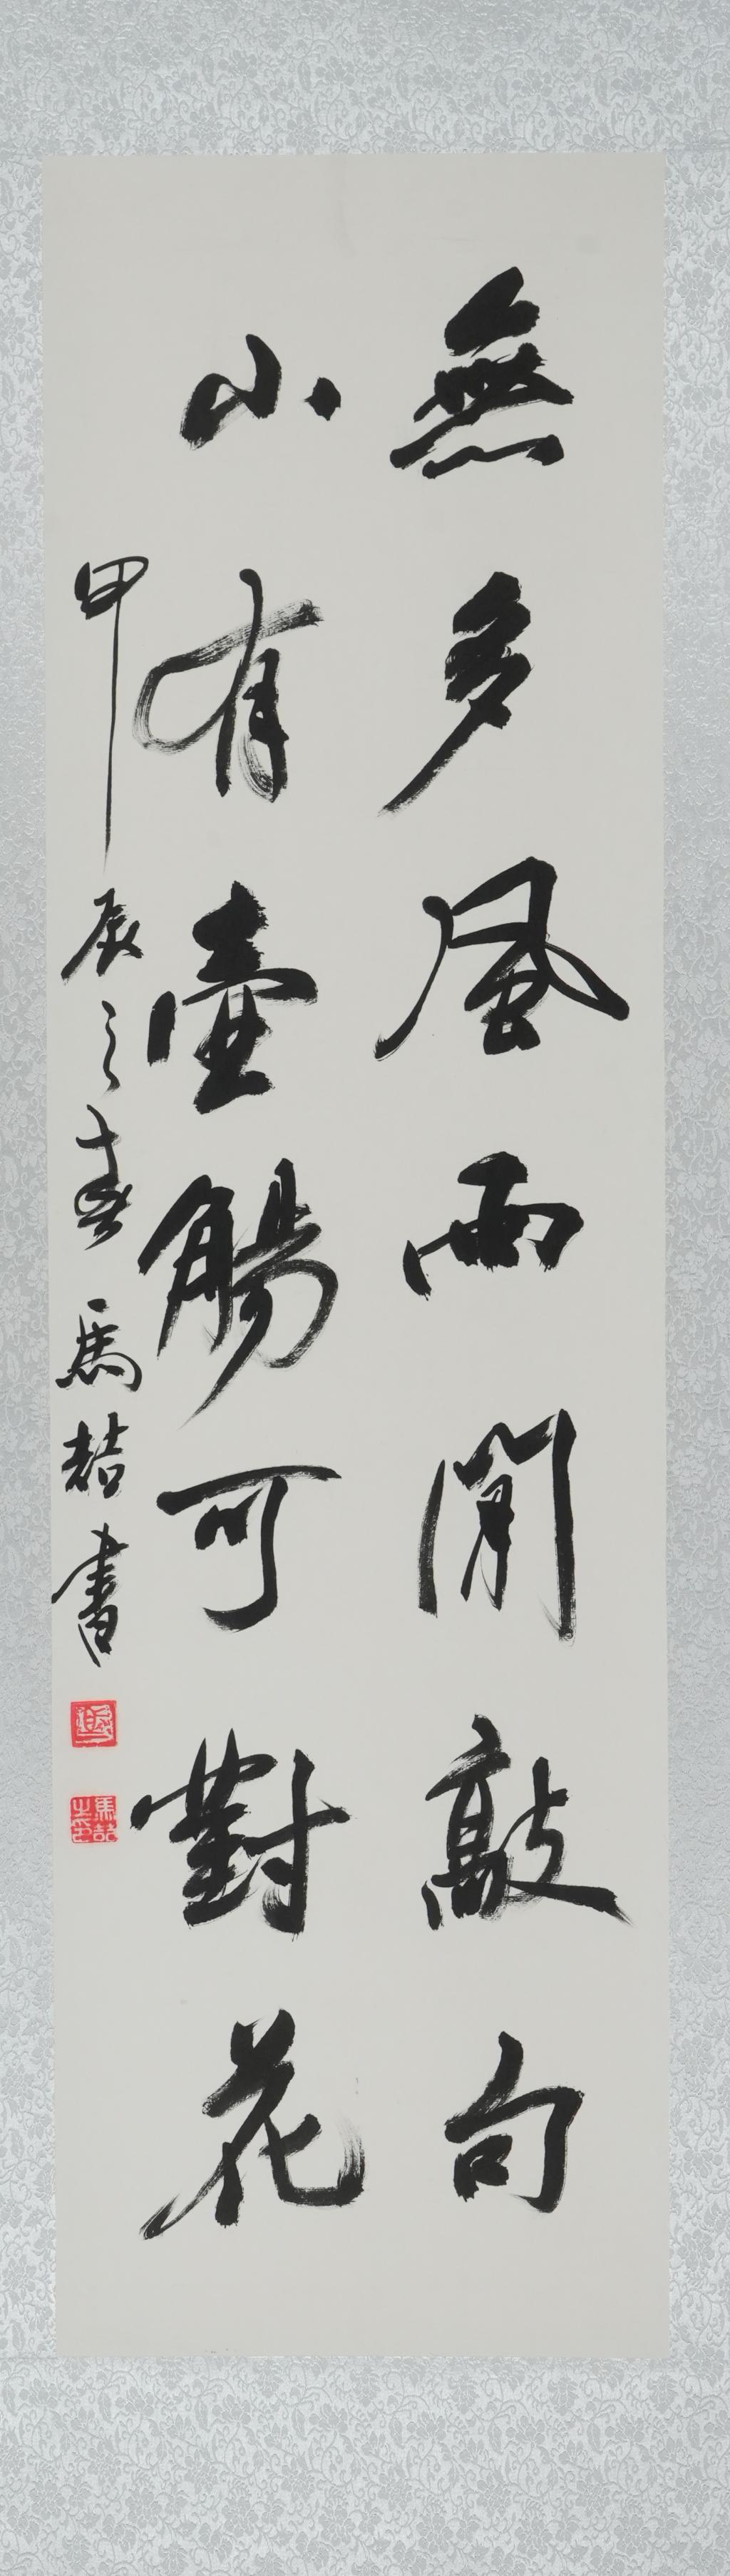 無多風雨閒敲句
小有壺觴可對花
甲辰之春 馬喆書
馬喆之印